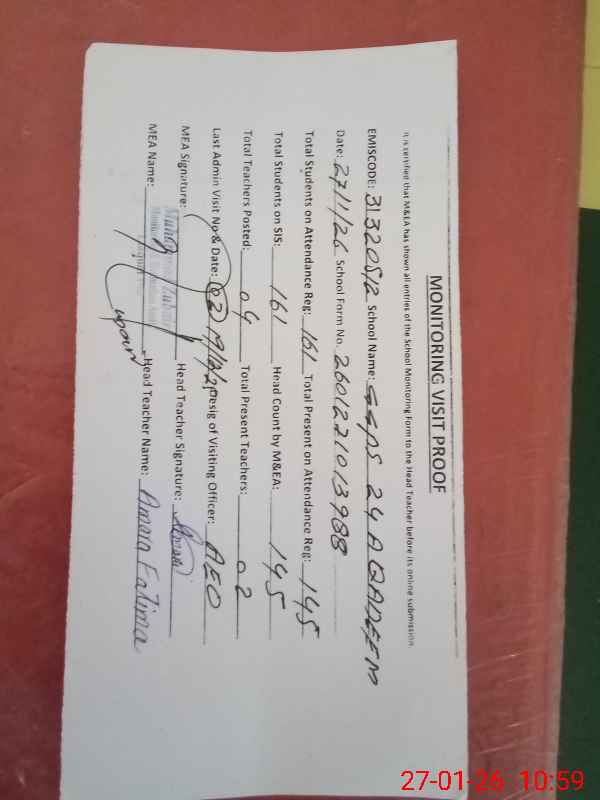 MONITORING VISIT PROOF
It is certified that M&EA has shown all entries of the School Monitoring Form to the Head Teacher before its online submission.
EMISCODE: 31320512 School Name: GGPS 24 A QADEEM
Date: 27/1/26 School Form No. 2601221013988
Total Students on Attendance Reg: 161 Total Present on Attendance Reg: 145
Total Students on SIS: 161 Head Count by M&EA: 145
Total Teachers Posted: 04 Total Present Teachers: 02
Last Admin Visit No & Date: (02) Desig of Visiting Officer: AEO
MEA Signature: Head Teacher Signature:
MEA Name: Head Teacher Name: Amara Fatima
27-01-26 10:59